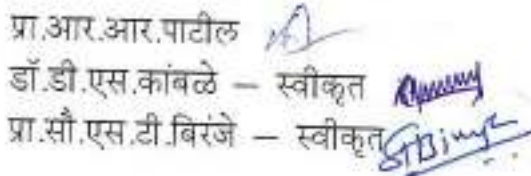 प्रा.आर.आर.पाटील
डॉ.डी.एस.कांबळे – स्वीकृत
प्रा.सौ.एस.टी.बिरंजे – स्वीकृत